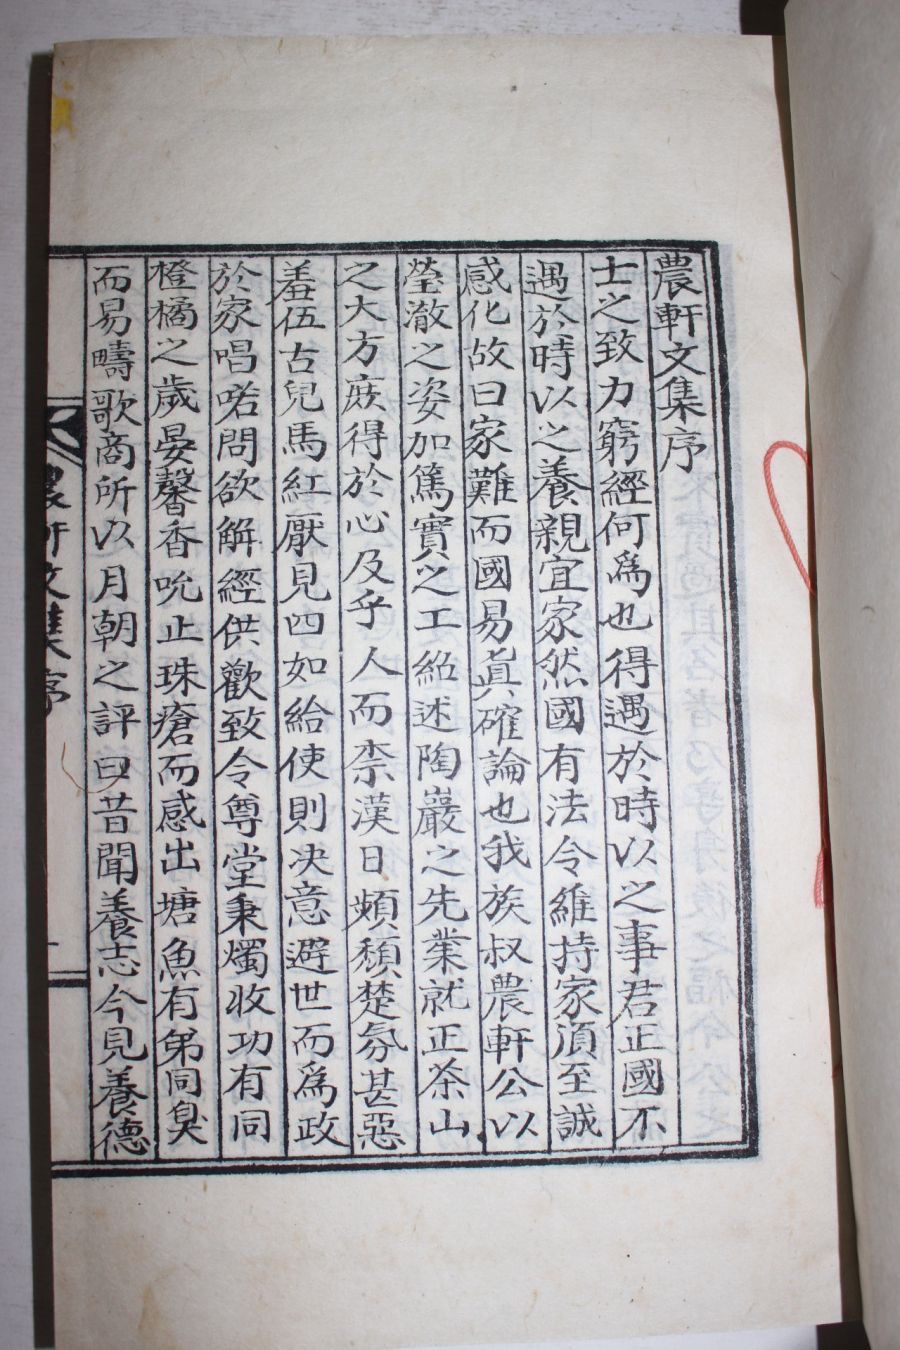 農軒文集序
士之致力窮經何爲也得遇於時以之事君正國不
遇於時以之養親宜家然國有法令維持家湏至誠
感化故曰家難而國易眞確論也我族叔農軒公以
瑩澈之姿加篤實之工紹述陶巖之先業就正茶山
之大方庶得於心及乎人而柰漢日頰頹楚氛甚惡
羞伍古兒馬紅厭見四如給使則决意避世而爲政
於家唱喏問欲解經供歡致令尊堂秉燭收功有同
橙橘之歲晏馨香吮止珠瘡而感出塘魚有弟同臭
而易疇歌商所以月朝之評曰昔聞養志今見養德
農軒文集序